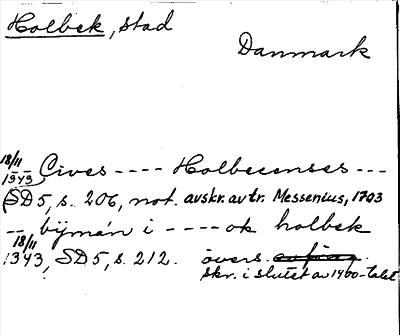 Holbek, stad
Danmark
18/11
1343 Cives ---- Holbecenses ---
(SD5, s. 206, not. avskr. av tr. Messenius, 1703
-- býmán i ----- ok holbek
18/11
1343, SD5, s. 212. övers.
skr. i slutet av 1400-talet